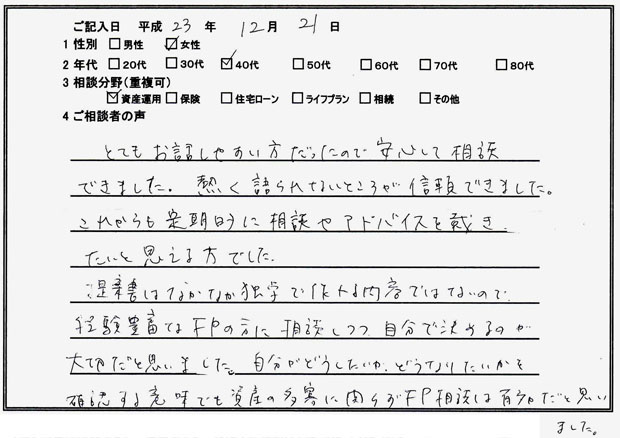 ご記入日 平成 23 年 12月 21 日
1 性別 □男性 ☑女性
2 年代 □20代 □30代 ☑40代 □50代 □60代 □70代 □80代
3 相談分野(重複可)
☑資産運用 □保険 □住宅ローン □ライフプラン □相続 □その他
4 ご相談者の声
とてもお話しやすい方だったので安心して相談
できました。熱く語られないところが信頼できました。
これからも定期的に相談やアドバイスを戴き
たいと思える方でした。
はなかなか独学で作れる内容ではないので、
経験豊富なFPの方に相談しつつ自分で決めるのが
大切だと思いました。自分がどうしたいか、どうなりたいかを
確認する意味でも資産の多寡に関らずFP相談は有効だと思い
ました。